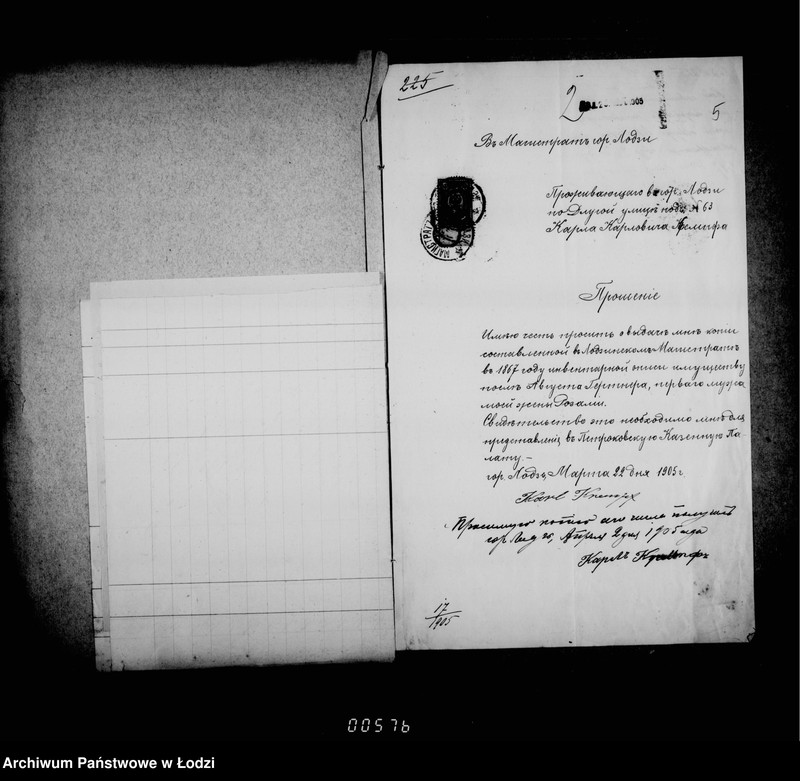 225
2
5
Въ Магистратъ гор. Лодзи
МАГИСТРАТ
Проживающаго въ гор. Лодзи
по Длугой улицѣ подъ № 63
Карла Карловича
Прошеніе
Имѣю честь просить о выдачѣ мнѣ копіи
составленной въ Лодзинскомъ Магистратѣ
въ 1867 году инвентарной описи имуществу
послѣ Августа Гертнера, перваго мужа
моей жены Розали.
Свидѣтельство это необходимо мнѣ для
представленія въ Петроковскую Казенную Па-
лату.-
гор. Лодзь, Марта 22 дня 1905 г.
Karl
копію сего числа получилъ
гор. Апрѣля 2 дня 1905 года
Карлъ
17
1905
00576
Archiwum Państwowe w Łodzi